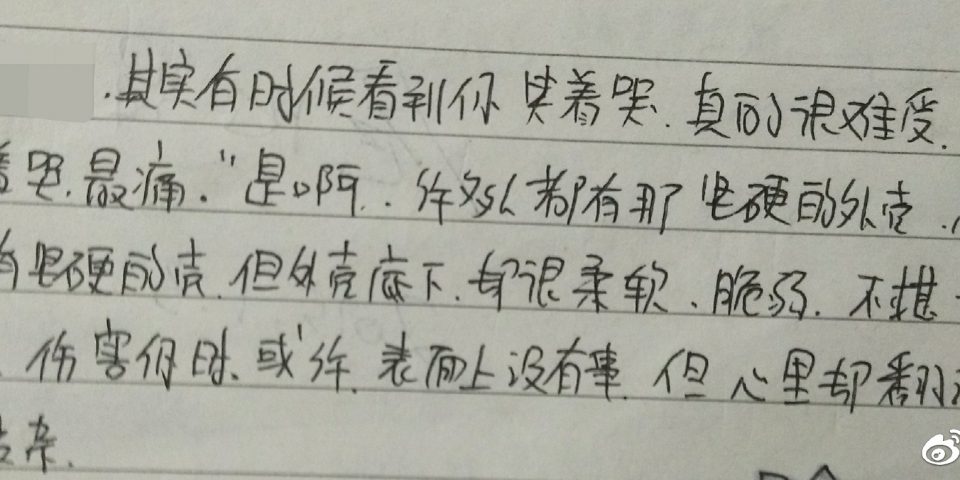 .其实有时候看到你笑着哭.真的很难受.
着哭.最痛."是啊..许多人都有那坚硬的外壳.
有坚硬的壳.但外壳底下.却很柔软、脆弱.不堪
伤害你时.或许.表面上没有事.但心里却翻
杂.